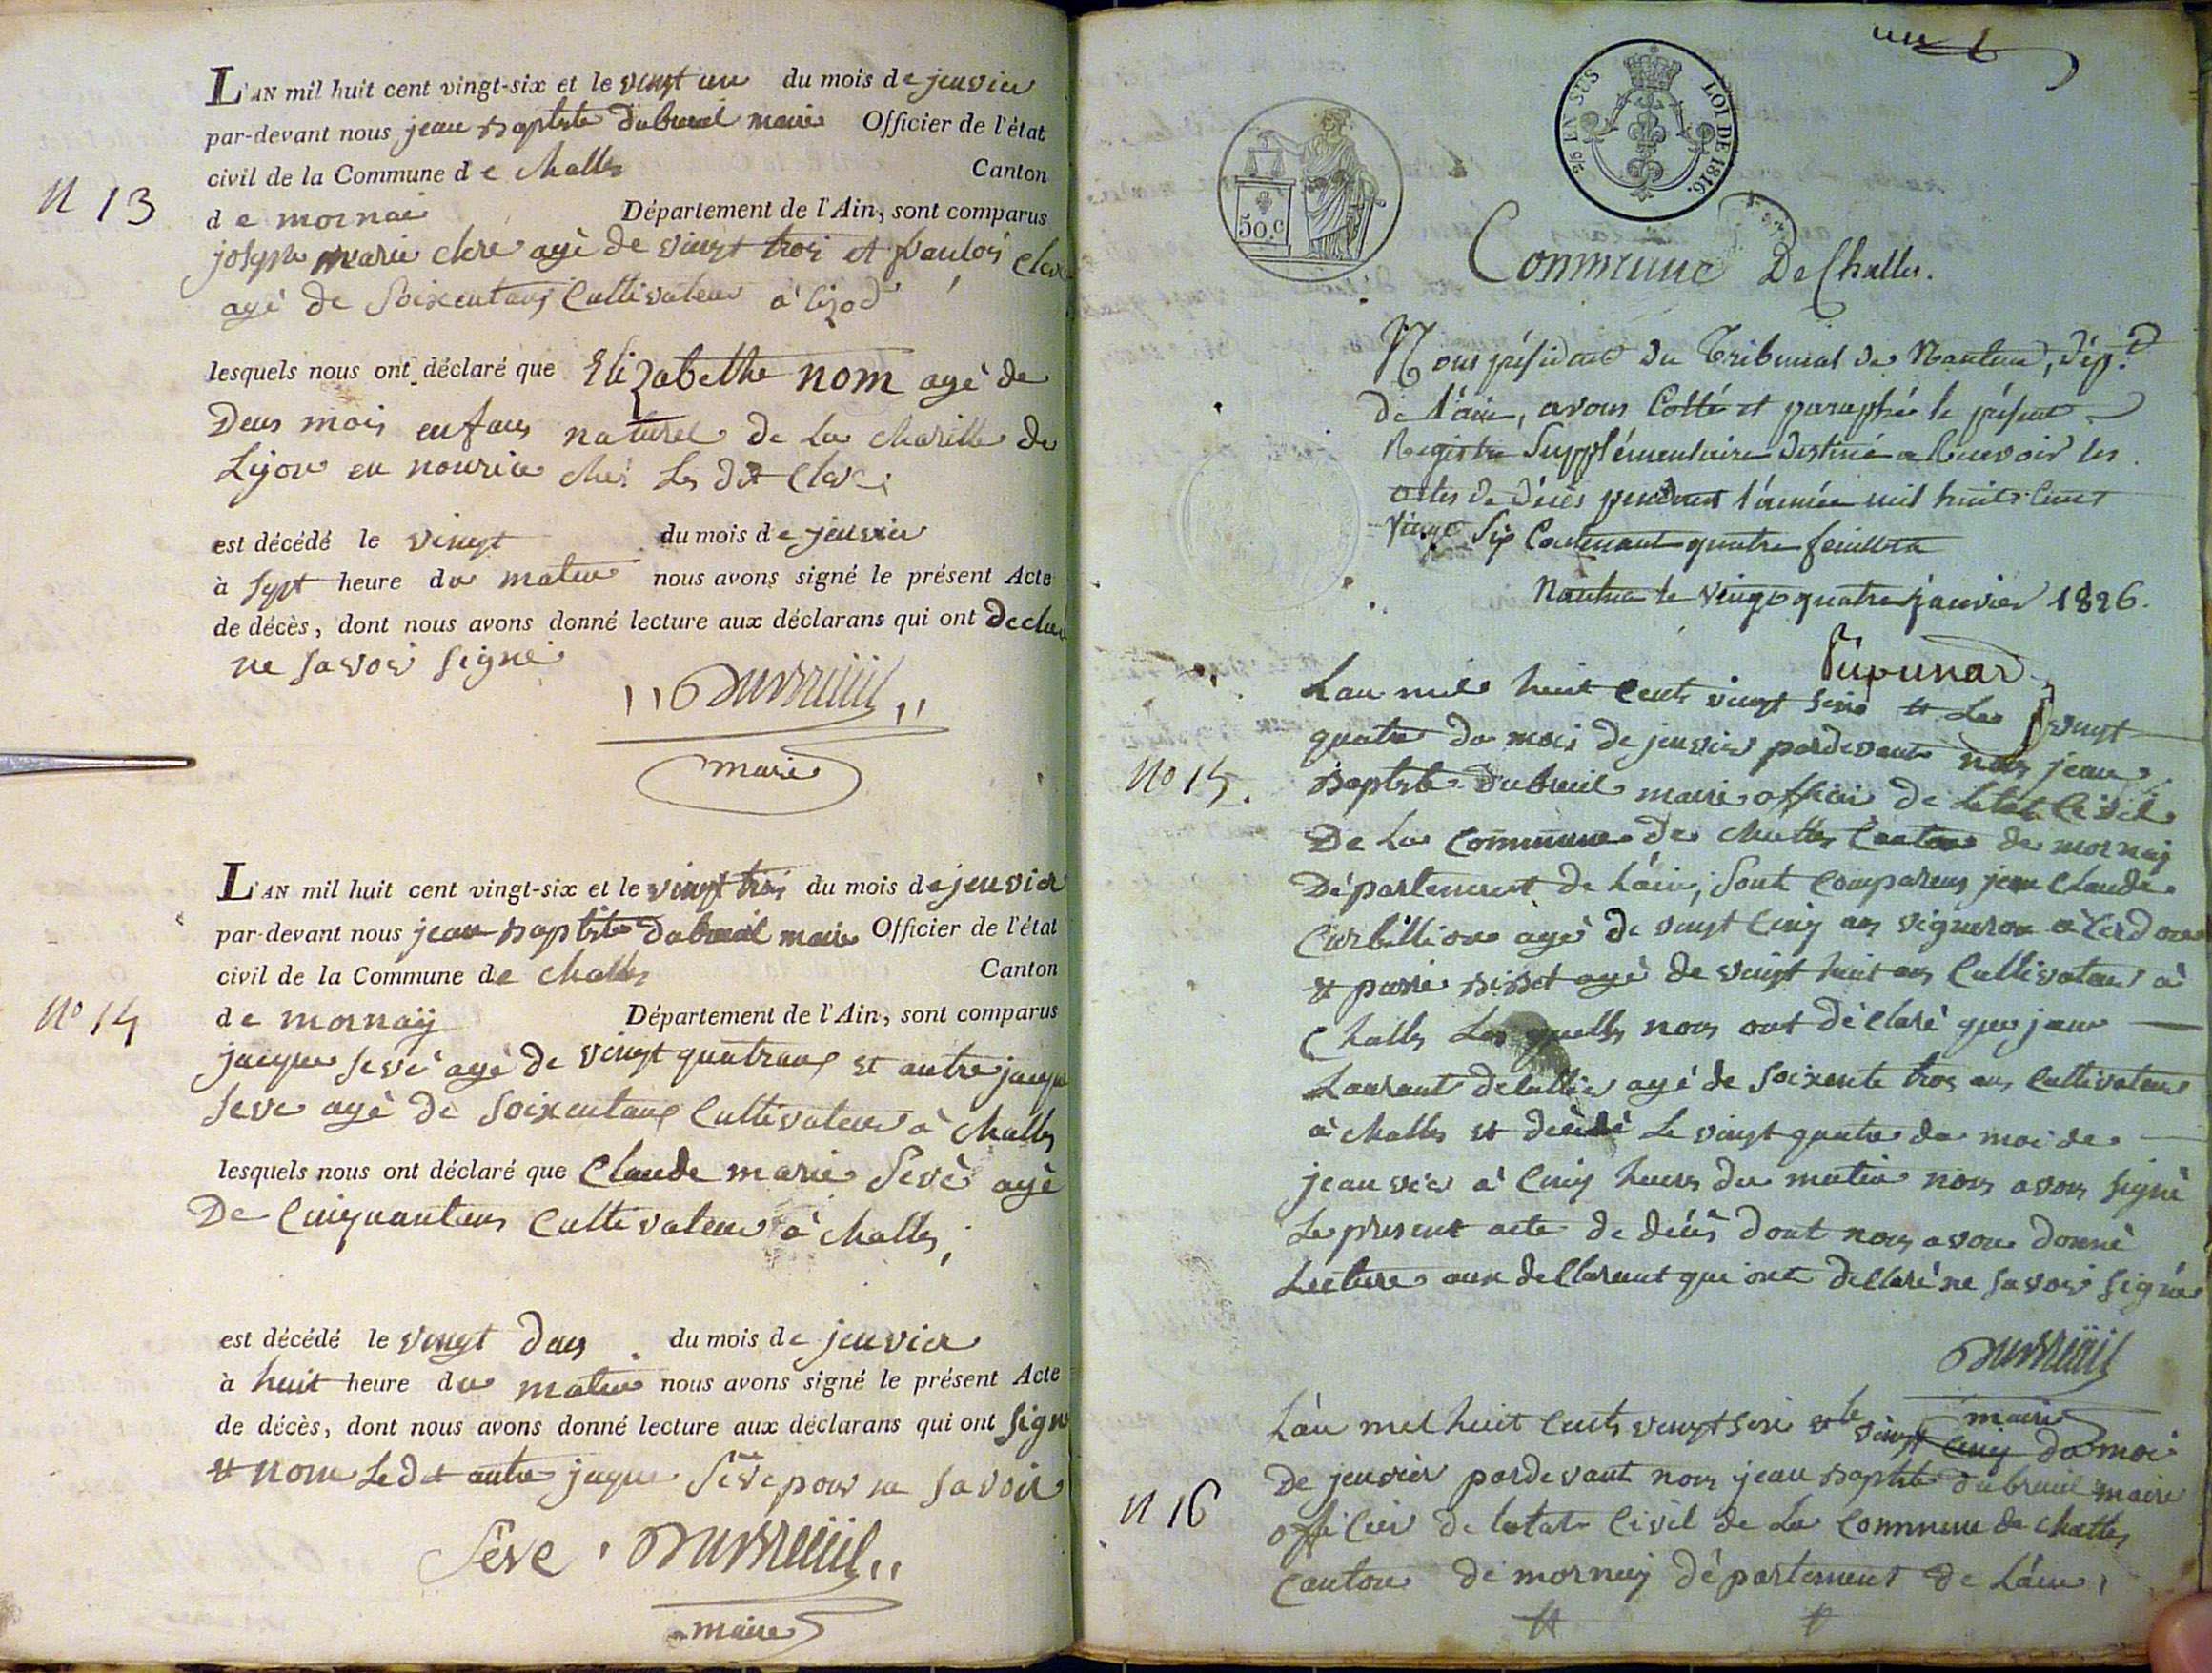 L'AN mil huit cent vingt-six et le vingt un du mois de jenvier
par-devant nous jean Baptiste Dubreuil maire Officier de l'état
civil de la Commune de Challes Canton
N 13
de mornai Département de l'Ain, sont comparus
joseph marie clere agé de vingt trois et
agé de Soixentans Cultivateur à
lesquels nous ont déclaré que Elizabethe nom agé de
Deus mois enfans naturel de La charille de
Lijon en nourice ches Les dit Clere
est décédé le vingt du mois de jenvier
à sept heure du matin nous avons signé le présent Acte
de décès, dont nous avons donné lecture aux déclarans qui ont Declaré
ne savoir signé
Dubreüil
maire
L'AN mil huit cent vingt-six et le vingt trois du mois de jenvier
par-devant nous jean Baptiste Dubreuil maire Officier de l'état
civil de la Commune de Challes Canton
No 14
de mornay Département de l'Ain, sont comparus
jacque Sevè agè de vingt quatrans et autre jaque
Seve agè de soixentans Cultivateur à Challes
lesquels nous ont déclaré que Claude marie Sevè agè
De Cinquantans Cultivateur à Challes,
est décédé le vingt deus du mois de jenvier
à huit heure du matin nous avons signé le présent Acte
de décès, dont nous avons donné lecture aux déclarans qui ont signé
et nom Ledit autre jaque Sève pour ne savoir
Sève Dubreüil
maire
un
2/5 EN SUS LOI DE 1816.
50.C
Commune De Challes.
Nous président du Tribunal de Nantua, dép.t
de l'ain, avons Cotté et paraphé le présent
Registre Supplémentaire destiné a Recevoir les
actes de décès pendant l'année mil huit cent
vingt Six Contenant quatre feuillets
Nantua le vingt quatre janvier 1826.
Lan mil huit cents vingt sixe et Le vingt
quatre du mois de jenvier pardevant nous jean
No 15.
Baptiste Dubreuil maire officié de Letat Civil
De La Commune de Challes Canton de mornay
Département de Láin, sont comparus jean Claude
Curbillion agé de vingt cinq ans vigneron à Cerdon
et Challes agè de vingt huit ans Cultivateur à
Challes Lesquells nous ont déclaré que jean
Laurant agé de soixente trois ans Cultivateur
à Challes et décédé Le vingt quatre du moi de
jeanvier à Cinq heures du matin nous avons signé
Le present acte de décès dont nous avons donné
Lecture aux dellarant qui ont dellaré ne savoir signé
Dubreüil
maire
Lán mil huit cents vingt sixe et le vingt cinq du moi
De jenvier pardevant nous jean Baptiste dubreuil maire
N 16
officier de letat Civil de La Commune de Challes
Canton de mornay département de Láin,